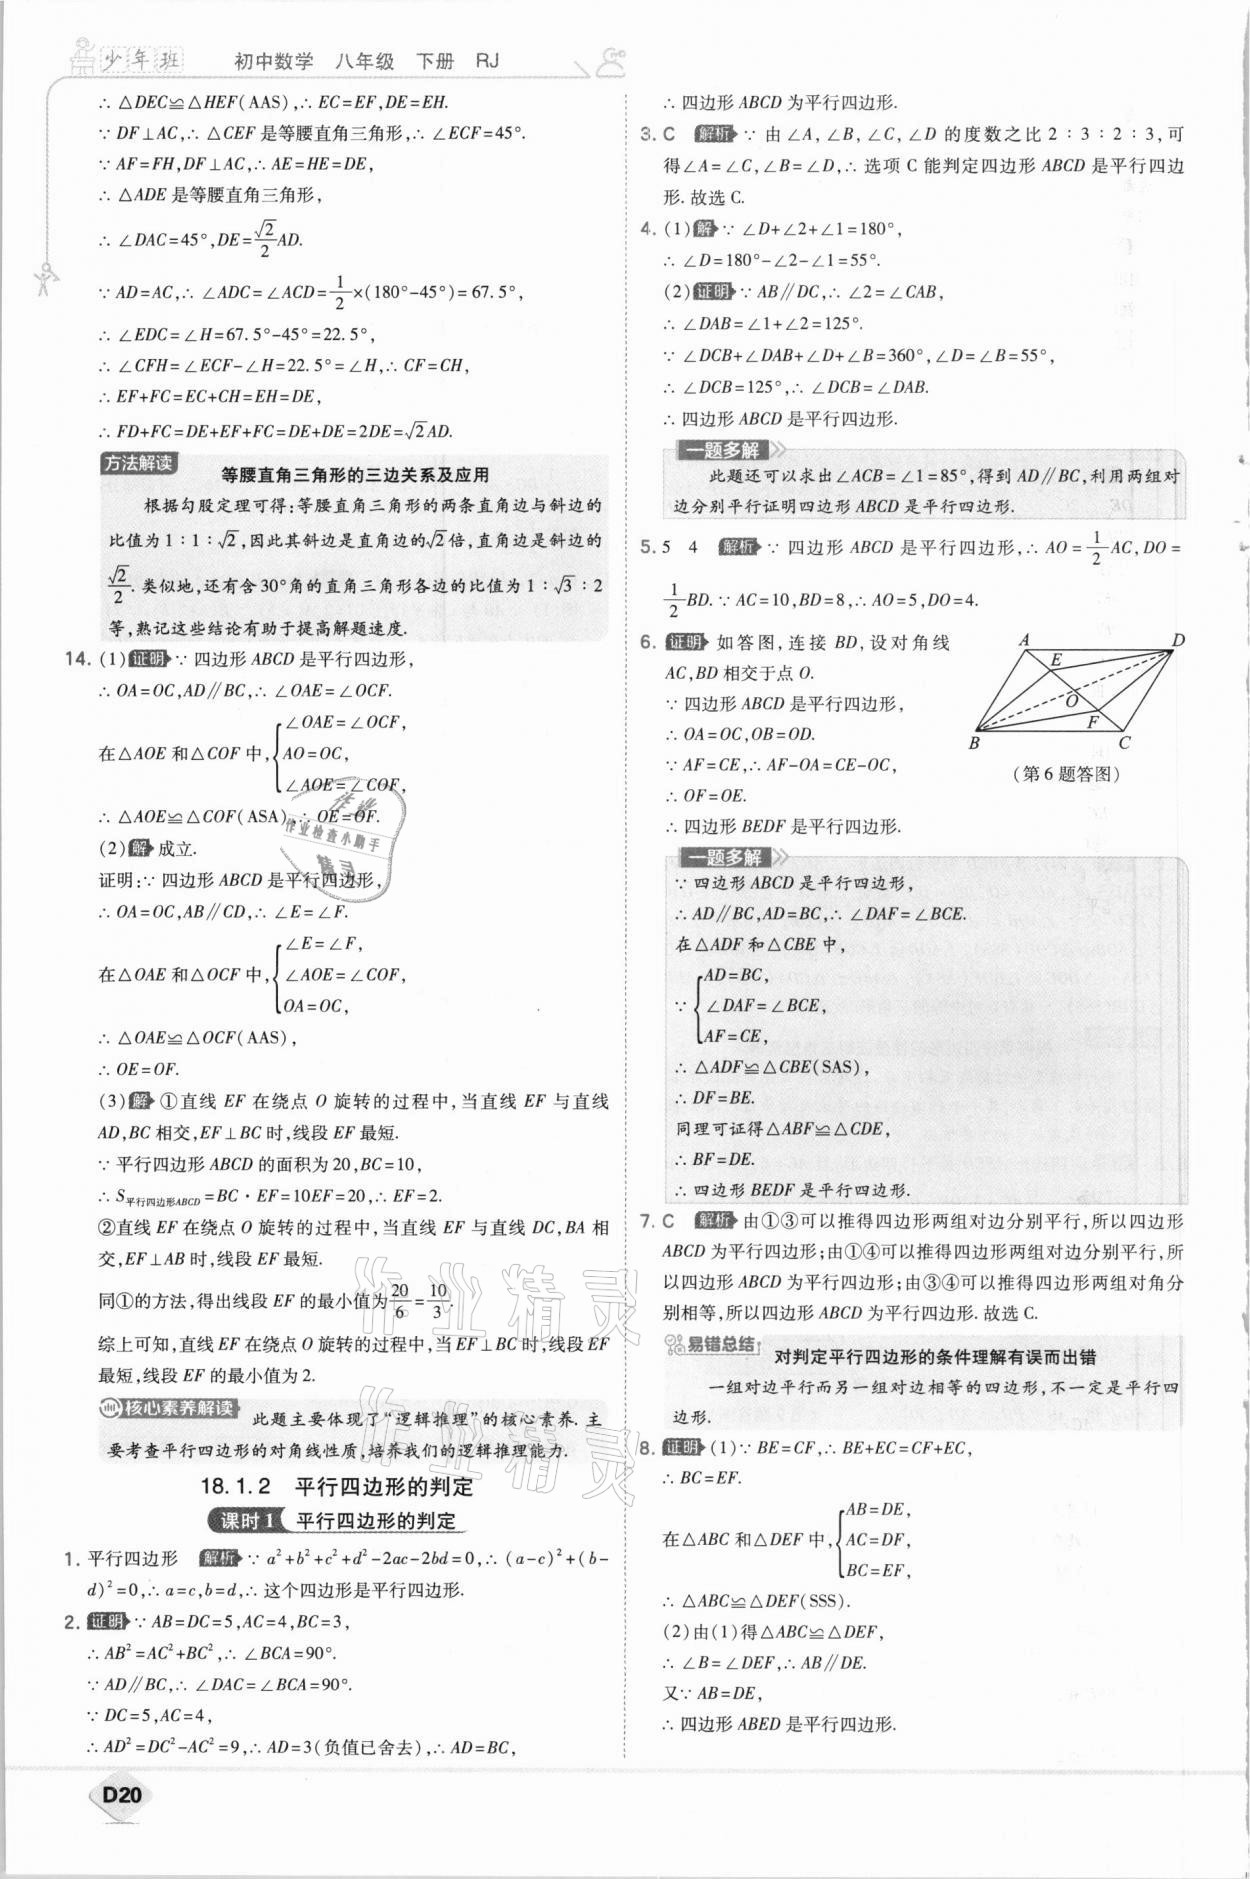 少年班 初中数学 八年级 下册 RJ
∴△DEC≌△HEF(AAS),∴EC=EF,DE=EH.
∵DF⊥AC,∴△CEF是等腰直角三角形,∴∠ECF=45°.
∵AF=FH,DF⊥AC,∴AE=HE=DE,
∴△ADE是等腰直角三角形,
∴∠DAC=45°,DE=√2/2AD.
∵AD=AC,∴∠ADC=∠ACD=1/2×(180°-45°)=67.5°,
∴∠EDC=∠H=67.5°-45°=22.5°,
∴∠CFH=∠ECF-∠H=22.5°=∠H,∴CF=CH,
∴EF+FC=EC+CH=EH=DE,
∴FD+FC=DE+EF+FC=DE+DE=2DE=√2AD.
方法解读
等腰直角三角形的三边关系及应用
根据勾股定理可得:等腰直角三角形的两条直角边与斜边的
比值为1∶1∶√2,因此其斜边是直角边的√2倍,直角边是斜边的
√2/2.类似地,还有含30°角的直角三角形各边的比值为1∶√3∶2
等,熟记这些结论有助于提高解题速度.
14.(1)证明∵四边形ABCD是平行四边形,
∴OA=OC,AD∥BC,∴∠OAE=∠OCF.
∠OAE=∠OCF,
在△AOE和△COF中,AO=OC,
∠AOE=∠COF,
∴△AOE≌△COF(ASA),∴OE=OF.
(2)解成立.
证明:∵四边形ABCD是平行四边形,
∴OA=OC,AB∥CD,∴∠E=∠F.
∠E=∠F,
在△OAE和△OCF中,∠AOE=∠COF,
OA=OC,
∴△OAE≌△OCF(AAS),
∴OE=OF.
(3)解①直线EF在绕点O旋转的过程中,当直线EF与直线
AD,BC相交,EF⊥BC时,线段EF最短.
∵平行四边形ABCD的面积为20,BC=10,
∴S平行四边形ABCD=BC·EF=10EF=20,∴EF=2.
②直线EF在绕点O旋转的过程中,当直线EF与直线DC,BA相
交,EF⊥AB时,线段EF最短.
同①的方法,得出线段EF的最小值为20/6=10/3.
综上可知,直线EF在绕点O旋转的过程中,当EF⊥BC时,线段EF
最短,线段EF的最小值为2.
核心素养解读 此题主要体现了“逻辑推理”的核心素养.主
要考查平行四边形的对角线性质,培养我们的逻辑推理能力.
18.1.2 平行四边形的判定
课时1 平行四边形的判定
1.平行四边形 解析∵a²+b²+c²+d²-2ac-2bd=0,∴(a-c)²+(b-
d)²=0,∴a=c,b=d,∴这个四边形是平行四边形.
2.证明∵AB=DC=5,AC=4,BC=3,
∴AB²=AC²+BC²,∴∠BCA=90°.
∵AD∥BC,∴∠DAC=∠BCA=90°.
∵DC=5,AC=4,
∴AD²=DC²-AC²=9,∴AD=3(负值已舍去),∴AD=BC,
∴四边形ABCD为平行四边形.
3.C 解析∵由∠A,∠B,∠C,∠D的度数之比2∶3∶2∶3,可
得∠A=∠C,∠B=∠D,∴选项C能判定四边形ABCD是平行四边
形.故选C.
4.(1)解∵∠D+∠2+∠1=180°,
∴∠D=180°-∠2-∠1=55°.
(2)证明∵AB∥DC,∴∠2=∠CAB,
∴∠DAB=∠1+∠2=125°.
∵∠DCB+∠DAB+∠D+∠B=360°,∠D=∠B=55°,
∴∠DCB=125°,∴∠DCB=∠DAB.
∴四边形ABCD是平行四边形.
一题多解
此题还可以求出∠ACB=∠1=85°,得到AD∥BC,利用两组对
边分别平行证明四边形ABCD是平行四边形.
5.5 4 解析∵四边形ABCD是平行四边形,∴AO=1/2AC,DO=
1/2BD.∵AC=10,BD=8,∴AO=5,DO=4.
6.证明如答图,连接BD,设对角线
AC,BD相交于点O.
∵四边形ABCD是平行四边形,
∴OA=OC,OB=OD.
∵AF=CE,∴AF-OA=CE-OC,
∴OF=OE.
∴四边形BEDF是平行四边形.
A D
E
O
F
B C
(第6题答图)
一题多解
∵四边形ABCD是平行四边形,
∴AD∥BC,AD=BC,∴∠DAF=∠BCE.
在△ADF和△CBE中,
AD=BC,
∵∠DAF=∠BCE,
AF=CE,
∴△ADF≌△CBE(SAS),
∴DF=BE.
同理可证得△ABF≌△CDE,
∴BF=DE.
∴四边形BEDF是平行四边形.
7.C 解析由①③可以推得四边形两组对边分别平行,所以四边形
ABCD为平行四边形;由①④可以推得四边形两组对边分别平行,所
以四边形ABCD为平行四边形;由③④可以推得四边形两组对角分
别相等,所以四边形ABCD为平行四边形.故选C.
易错总结
对判定平行四边形的条件理解有误而出错
一组对边平行而另一组对边相等的四边形,不一定是平行四
边形.
8.证明(1)∵BE=CF,∴BE+EC=CF+EC,
∴BC=EF.
AB=DE,
在△ABC和△DEF中,AC=DF,
BC=EF,
∴△ABC≌△DEF(SSS).
(2)由(1)得△ABC≌△DEF,
∴∠B=∠DEF,∴AB∥DE.
又∵AB=DE,
∴四边形ABED是平行四边形.
D20
作业
作业检查小助手
精灵
作业精灵
作业精灵